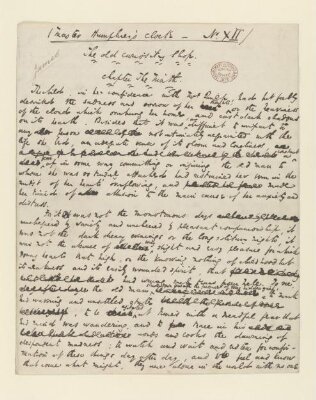 (Master Humphrey's Clock — No XII)
The old curiosity Shop.
Chapter the Ninth
The child, in her confidence with Mrs Quilp, had but feebly
described the sadness and sorrow of her thoughts, or the heaviness
of the cloud which overhung her home, and cast dark shadows
on its hearth. Besides that it was very difficult to impart to
any person not intimately acquainted with the
life she led, an adequate sense of its gloom and loneliness, a constant
fear of in some way committing or injuring the old man to
whom she was so tenderly attached had restrained her even in the
midst of her heart's overflowing, and made
her timid of allusion to the main cause of her anxiety and
distress.
For it was not the monotonous days
unchequered by variety and uncheered by pleasant companionship, it
was not the dark dreary evenings or the long solitary nights, it
was not the absence of every slight and easy pleasure for which
young hearts beat high, or the knowing nothing of childhood but
its weakness and its easily wounded spirit, that had
wrung such tears from Nell. To see
the old man struck down beneath the pressure of some hidden grief, to mark
his wavering and unsettled state,
to be agitated at times with a dreadful fear that
his mind was wandering, and to trace in his
words and looks the dawning of
despondent madness; to watch and wait and listen for confir-
mation of these things day after day, and to feel and know
that come what might, they were alone in the world with no one